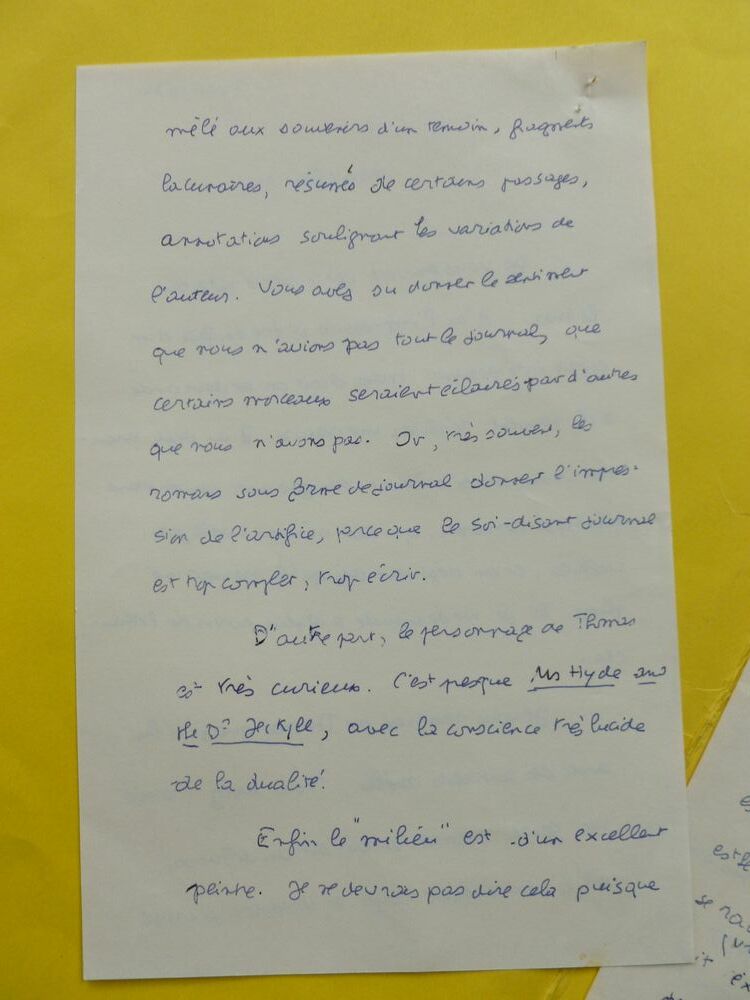 mêlé aux souvenirs d'un témoin, fragments
lacunaires, résumés de certains passages,
annotations soulignant les variations de
l'auteur. Vous avez su donner le sentiment
que nous n'avions pas tout le journal, que
certains morceaux seraient éclairés par d'autres
que nous n'avons pas. Or, très souvent, les
romans sous forme de journal donnent l'impres-
sion de l'artifice, parce que le soi-disant journal
est trop complet, trop écrit.
D'autre part, le personnage de Thomas
est très curieux. C'est presque Mr Hyde and
the Dr Jeckyll, avec la conscience très lucide
de la dualité.
Enfin le "milieu" est d'un excellent
peintre. Je ne devrais pas dire cela puisque